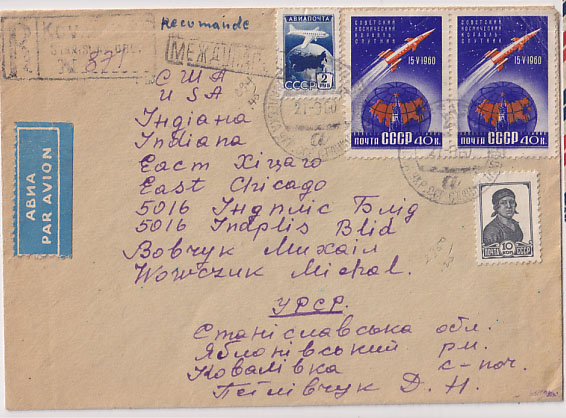 Recomandé
R
№ 871
АВИАПОЧТА
2 РУБ
СССР
СОВЕТСКИЙ
КОСМИЧЕСКИЙ
КОРАБЛЬ-
СПУТНИК
15·V·1960
ПОЧТА СССР 40 К.
СОВЕТСКИЙ
КОСМИЧЕСКИЙ
КОРАБЛЬ-
СПУТНИК
15·V·1960
ПОЧТА СССР 40 К.
США
USA
Індіана
Indiana
Еаст Хіцаго
East Chicago
5016 Індпліс Блід
5016 Indplis Blid
Вовчук Михаіл
Wowczuk Michal.
АВИА
PAR AVION
ПОЧТА 10 КОП СССР
УРСР.
Станіславська обл.
Яблонівський рм.
Ковалівка с-поч.
Д. Н.